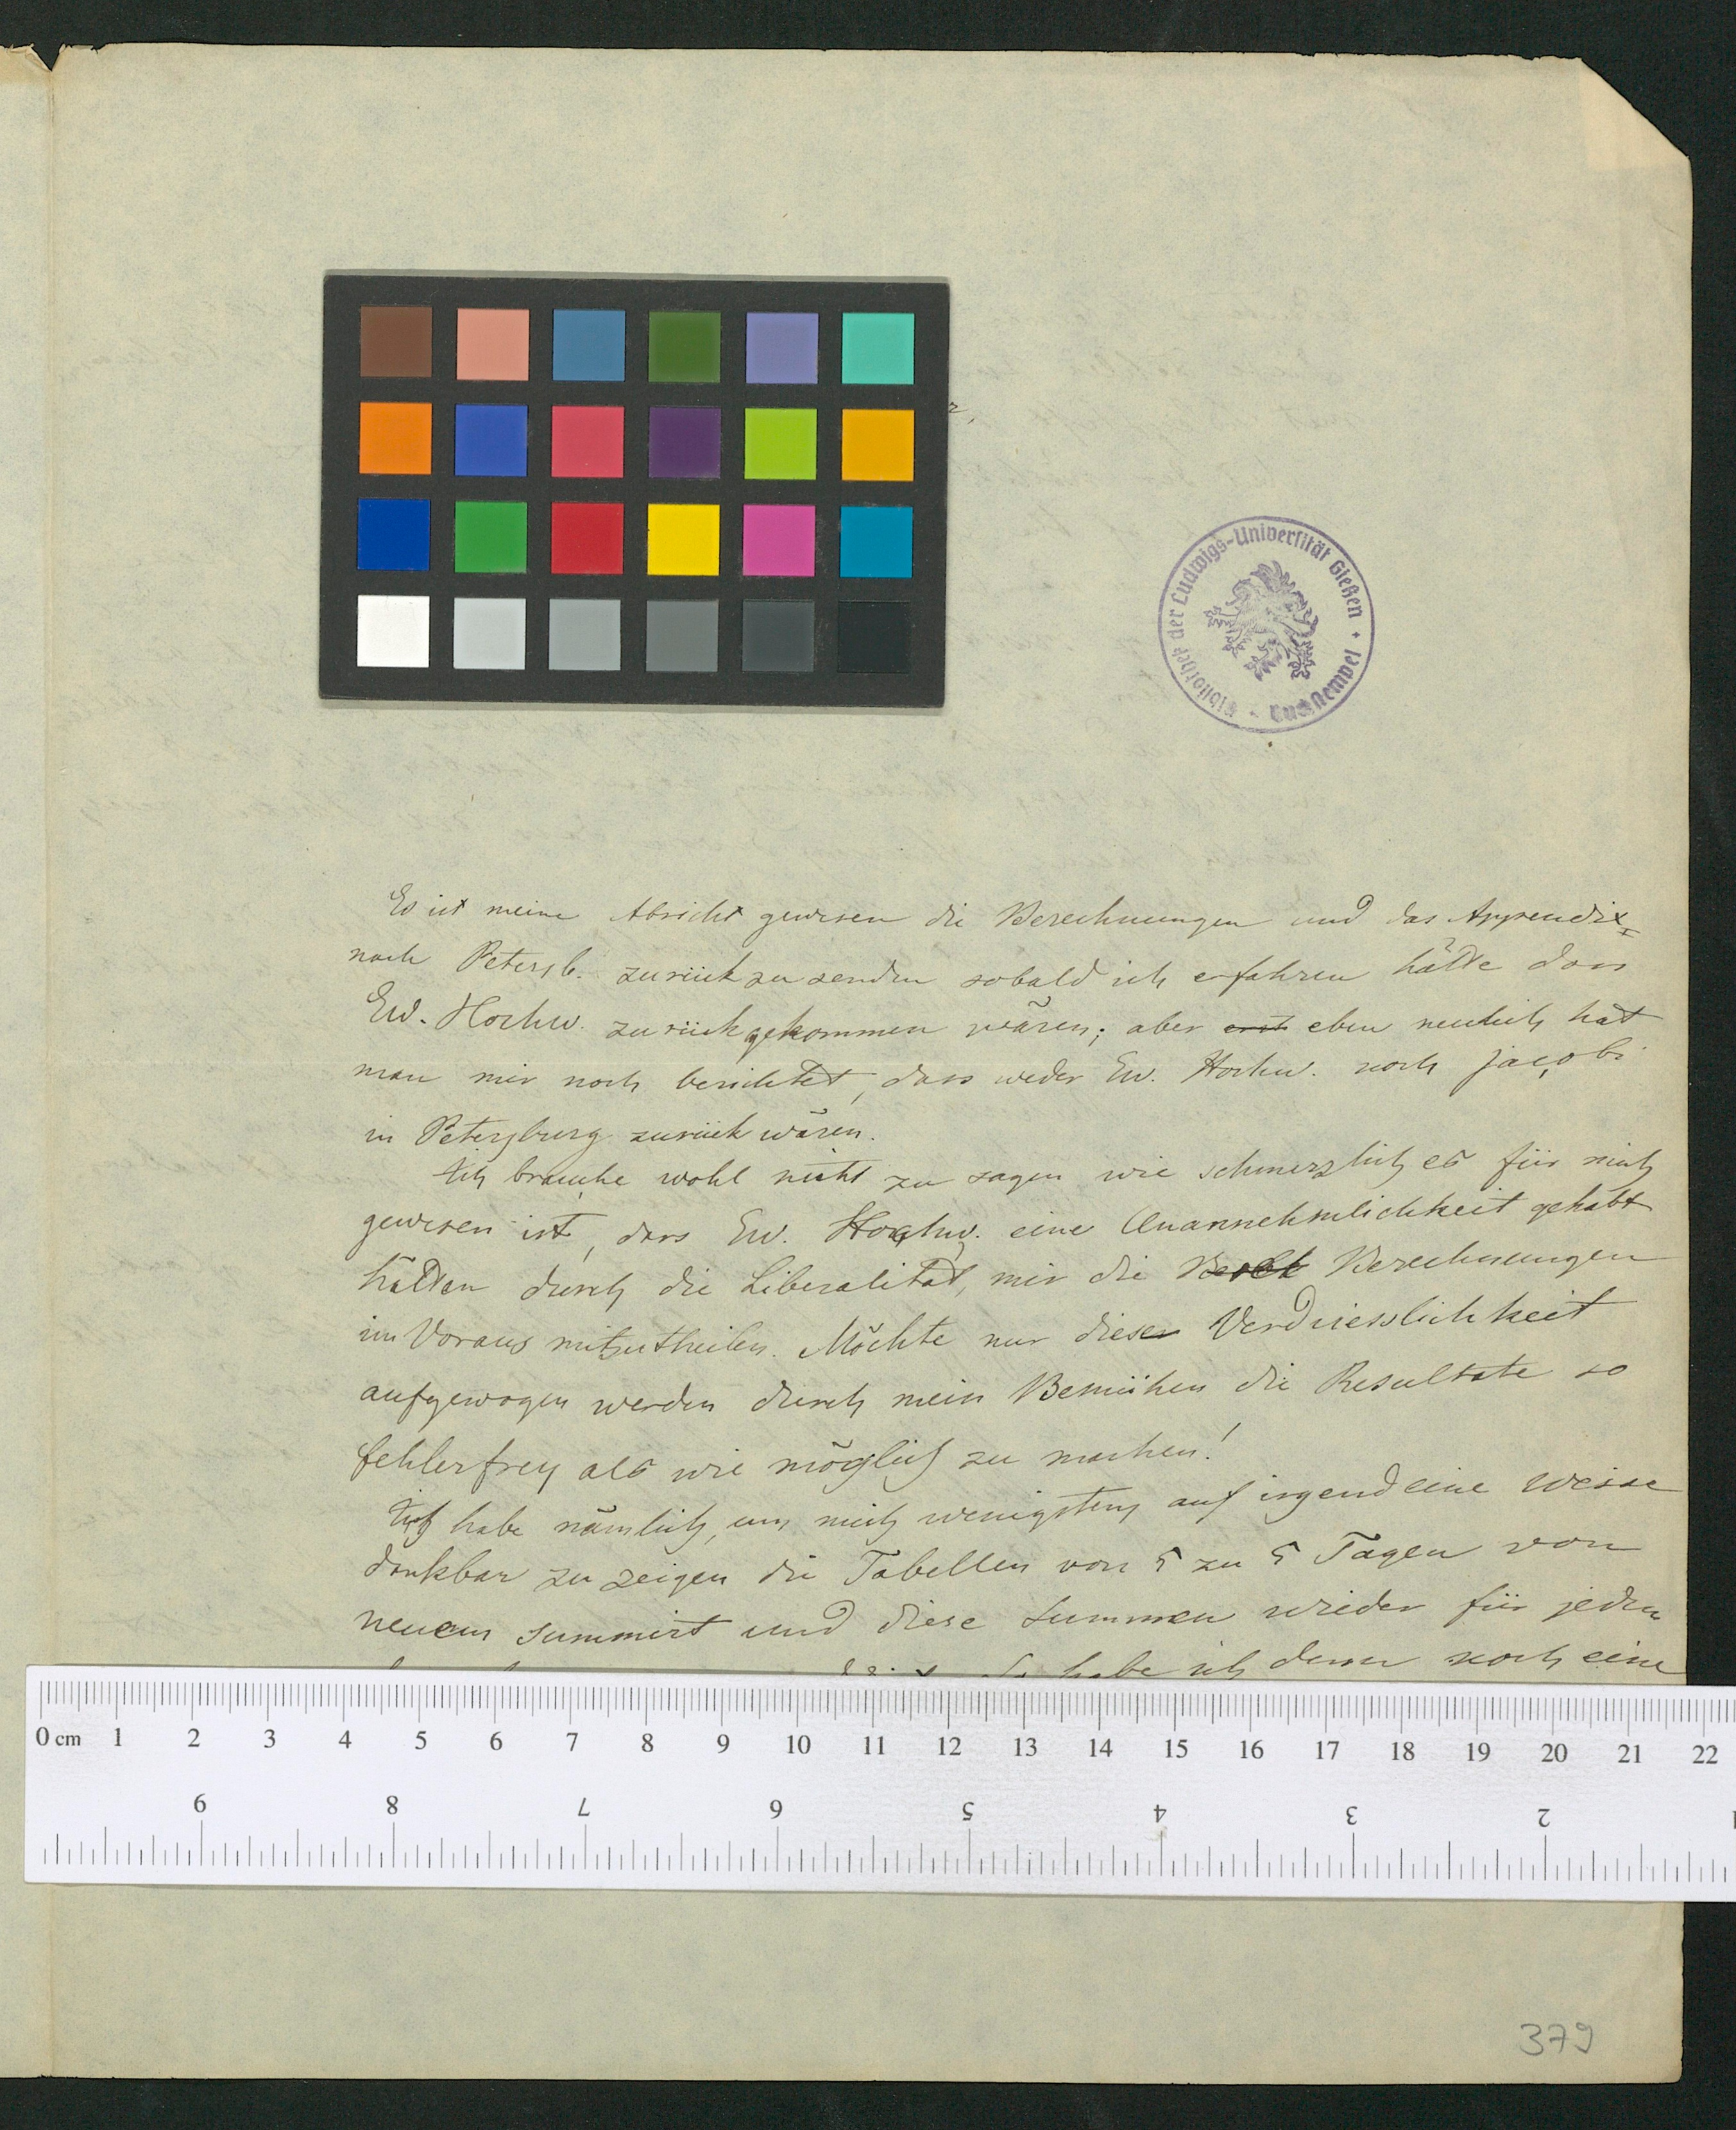 Bibliothek der Ludwigs-Universität Gießen
Es ist meine Absicht gewesen die Berechnungen und das Appendix
nach Petersb. zurückzusenden sobald ich erfahren hätte dass
Ew. Hochw. zurückgekommen wären; aber erst eben neulich hat
man mir noch berichtet, dass weder Ew. Hochw. noch jacobi
in Petersburg zurück wären.
Ich brauche wohl nicht zu sagen wie schmerzlich es für mich
gewesen ist, dass Ew. Hochw. eine Unannehmlichkeit gehabt
hätten durch die Liberalität, mir die Berechnungen
im Voraus mitzutheilen. Möchte nur diese Verdriesslichkeit
aufgewogen werden durch mein Bemühen die Resultate so
fehlerfrey als wie möglich zu machen!
Ich habe nämlich, um mich wenigstens auf irgend eine weise
dankbar zu zeigen die Tabellen von 5 zu 5 Tagen von
neuem summirt und diese Summen wieder für jeden
habe ich denn noch eine
0 cm 1 2 3 4 5 6 7 8 9 10 11 12 13 14 15 16 17 18 19 20 21 22
9 8 7 6 5 4 3 2
379